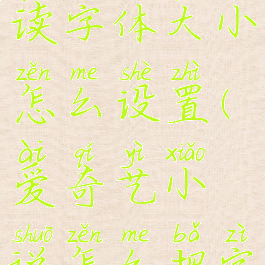 读字体大小
zěn me shè zhì
怎么设置(
ài qí yì xiǎo
爱奇艺小
shuō zěn me bǎ zì
说怎么把字